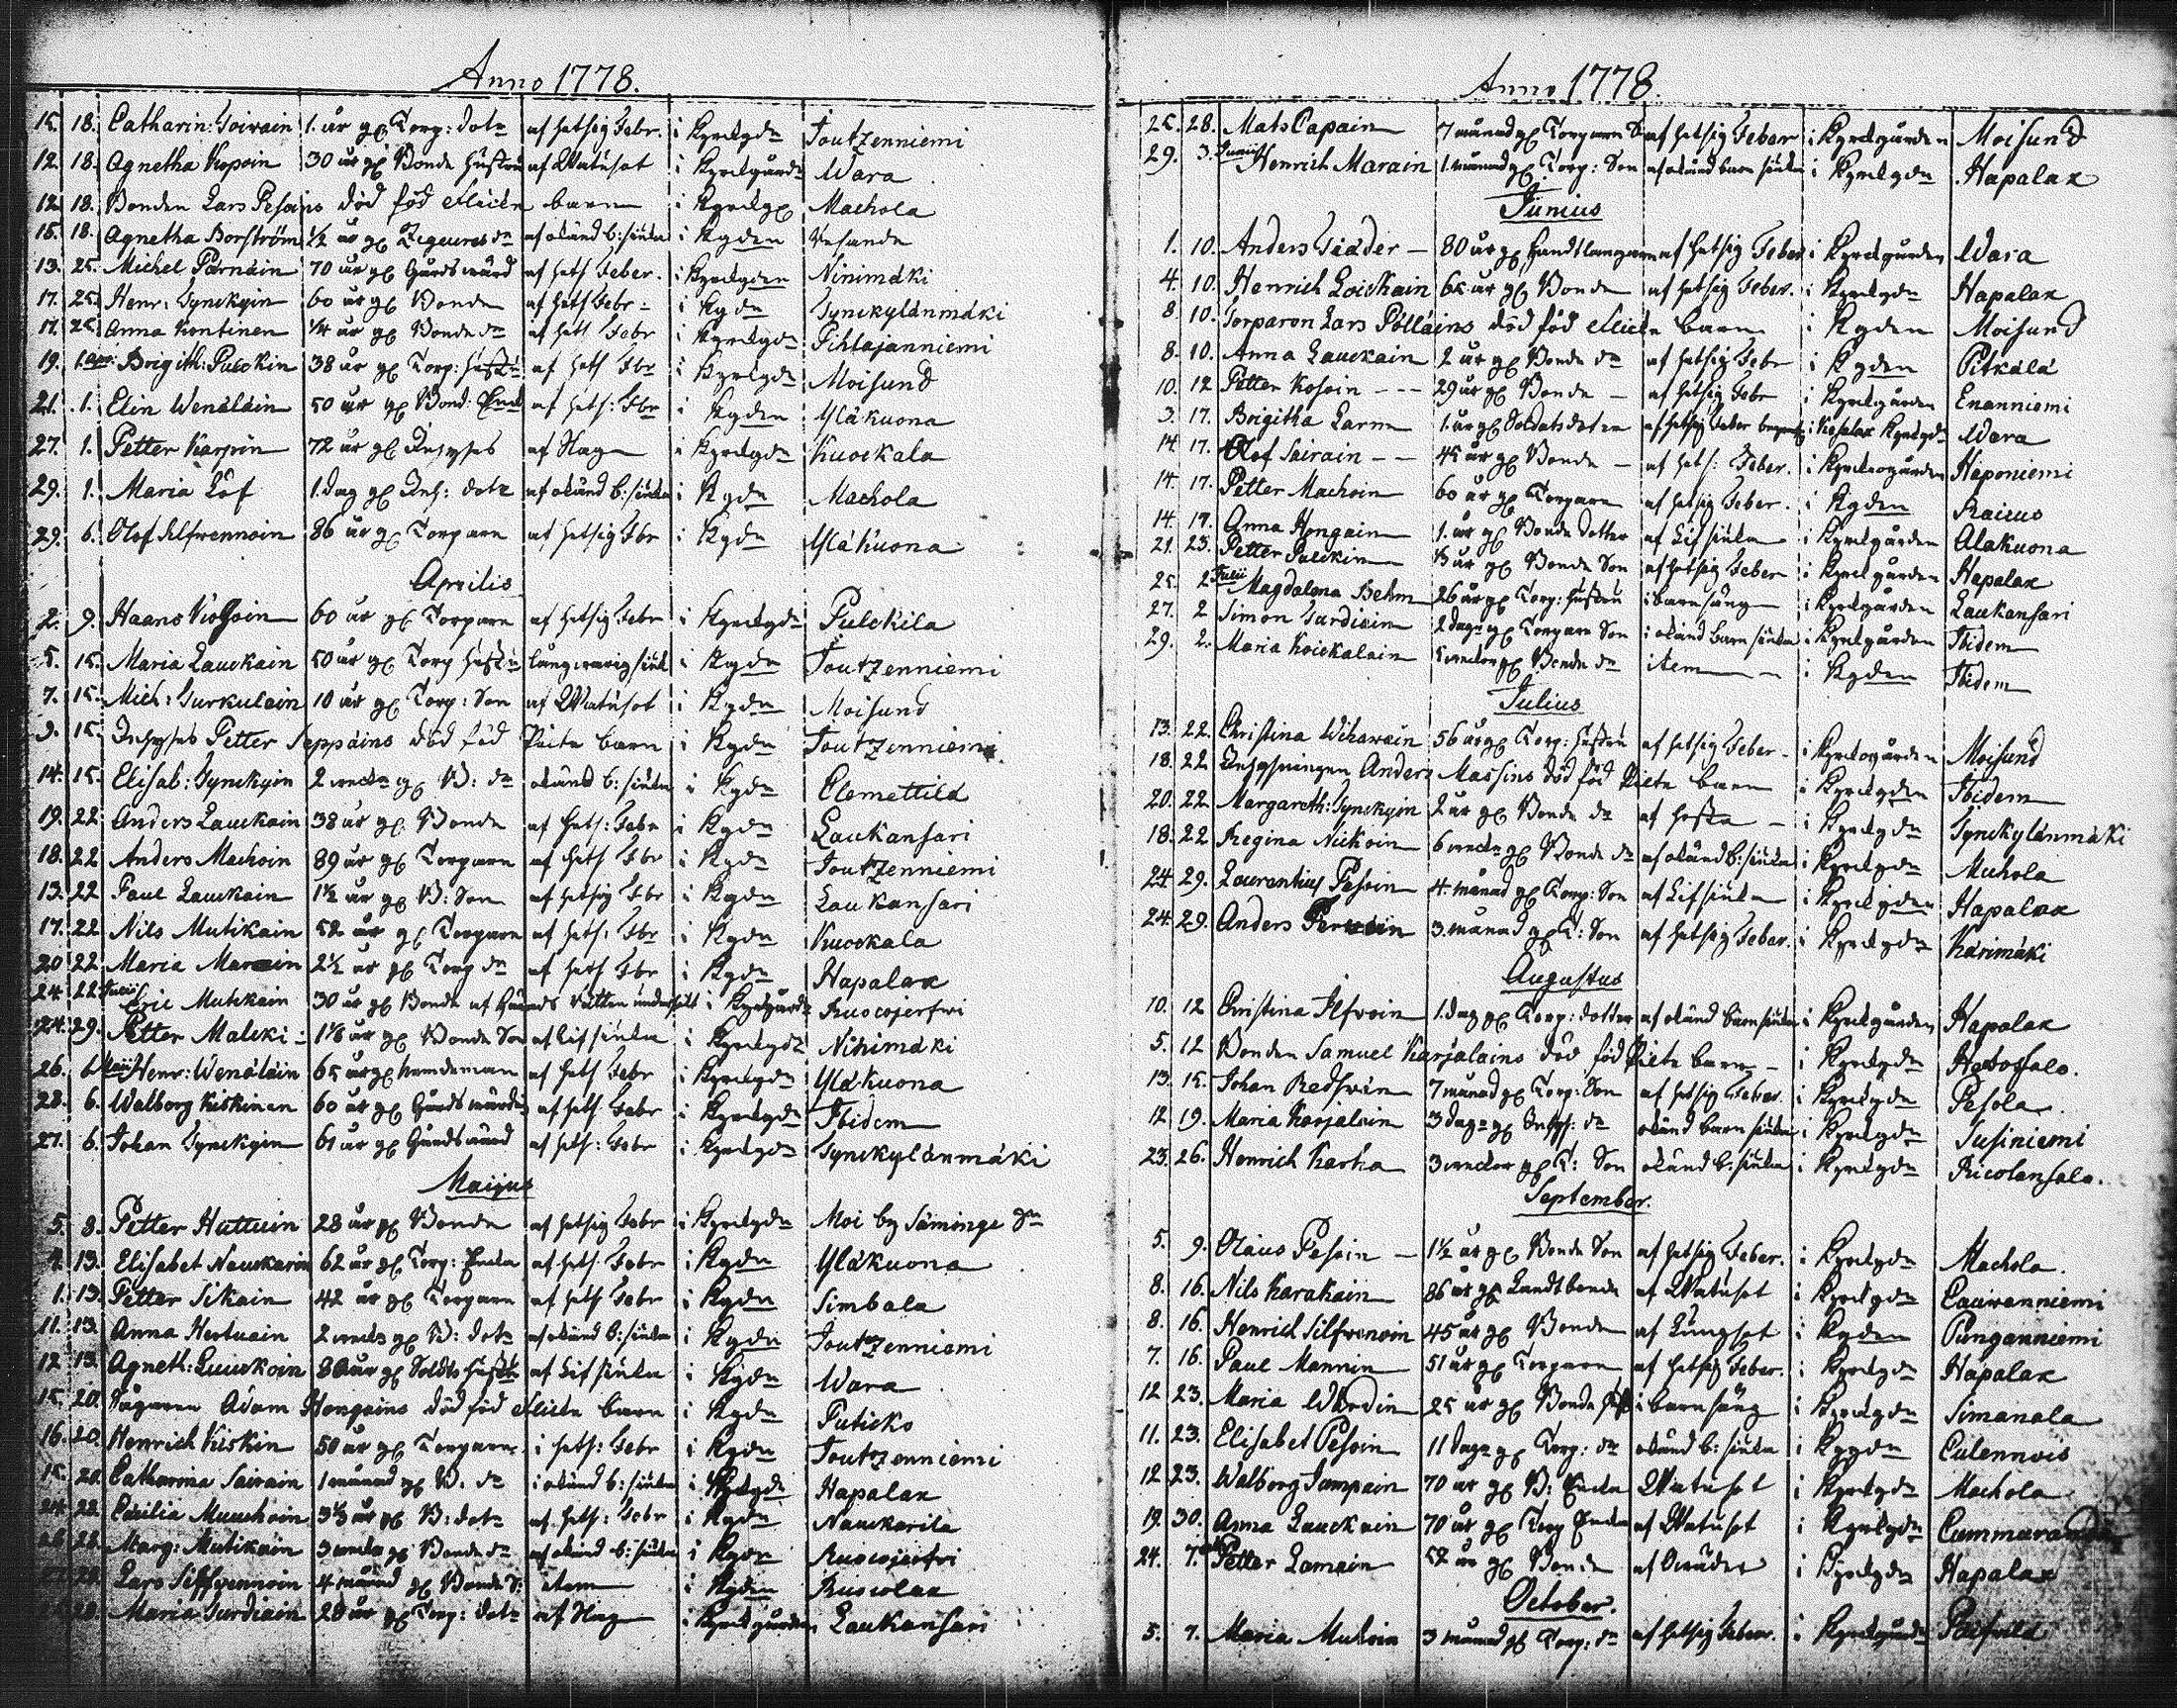 Anno 1778.
15. 18. Catharin: Toivain 1. år gl Torp: dotr af hetsig Febr. i Kyrckgdn Joutzenniemi
12. 18. Agnetha Kopoin 30 år gl Bonde hustru af Watusot i Kyrckgårdn Wara
12. 18. Bonden Lars Pesoins död föd flicke barn i Kyrckg Machola
15. 18. Agnetha Borström ½ år gl af okänd b: siuka i Kgden
13. 25. Michel Pärnäin 70 år gl Gårdswärd af hets Feber. i Kyrckgden Ninimäki
17. 25. Henr: Synckyin 60 år gl Bonde af hets Febr: i Kgdn Synckylänmäki
17. 25. Anna Kontinen ¼ år gl Bonde dr af hets Febr i Kyrckgdn Pihlajanniemi
19. 1. apr: Brigith: Pulckin 38 år gl Torp: hustru af hets Fbr i Kyrckgdn Moisund
21. 1. Elin Wenäläin 50 år gl Bond: Enck af hets: Fbr i Kgden Yläkuona
27. 1. Petter Karpin 72 år gl Inhyses af Hag i Kyrckgdn Kuockala
29. 1. Maria Löf 1. dag gl Inh: dotr af okänd b: siuka i Kgdn Machola
29. 6. Olof Ilfwennoin 86 år gl Torparn af hetsig Fbr i Kgdn Yläkuona
Aprilis
2. 9. Haans 60 år gl Torparn af hetsig Febr i Kyrckgdn Pulckila
5. 15. Maria Lauckain 50 år gl Torp hustru långwarig siuk i Kgdn Joutzenniemi
7. 15. Mich: Turkulain 10 år gl Torp: Son af Watusot i Kgdn Moisund
9. 15. Inhyses Petter Seppäins död föd Piite barn i Kgdn Joutzenniemi
14. 15. Elisab: Synckyin 2 weckr gl B: dr okänd b: siuka i Kgdn Clemettilä
19. 22. Anders Lauckain 38 år gl. Bonde af hets: Febr i Kgdn Laukansari
18. 22 Anders Machoin 89 år gl Torparn af hets Fbr i Kgdn Joutzenniemi
13. 22 Paul Lauckain 1½ år gl B: Son af hetsig Fbr i Kgdn Laukansari
17. 22 Nils Mutikain 52 år gl Torparn af hets: Fbr i Kgdn Kuockala
20 22 Maria Marain 2½ år gl Torp dr af hets Fbr i Kgdn Hapalax
24 22 Eric Mutikain 30 år gl Bonde i Kyrckgårdn Ruocojerfwi
24. 29. Petter Malcki: 1⅛ år gl Bonde Son af Lifsiuka i Kyrckgdn Ninimäki
26. 6. Maii Henr: Wenäläin 65 år gl af hets Febr i Kyrckgdn Yläkuona
28. 6. Walborg Kiskinen 60 år gl Gårdswärdin af hets. Febr i Kyrckgdn Ibidem
27. 6. Johan Synckyin 61 år gl Gårdswärd af hets: Febr i Kyrckgdn Synckylänmäki
Maijus
5. 8. Petter Hattuin 28 år gl Bonde af hetsig Febr i Kyrckgdn Moi by Säminge Sn
4. 13. Elisabet Nauckarin 62 år gl. Torp: Encka af hets. Febr i Kgdn Yläkuona
1. 13. Petter Sikain 42 år gl Torparn af hets Febr i Kgdn Simbala
11. 13. Anna Hertuain 2 weckr gl B: dotr af okänd b: siuka i Kgdn Joutzenniemi
12 13. Agneth: Luuckoin 80 år gl Soldts hustru af Lifsiuka i Kgdn Wara
15. 20. Adam Hongains död föd flicke barn i Kgdn Puticko
16. 20. Henrich Kiskin 50 år gl Torparn. i hets: Febr i Kgdn Joutzenniemi
15. 20. Catharina Sairain 1 månad gl B. dr i okänd b: siuka i Kyrckgdn Hapalax
24. 28. Cecilia Muuchoin 3⅓ år gl B: dotr af hets: Febr i Kgdn Nauckarila
26 28. Marg: Mutikain 3 weckr gl Bonde dr af okänd b: siuka i Kgdn Ruocojerfwi
28. Lars Silfvennoin 4 månad gl Bonde S: item i Kgden Ruocolax
28. Maria Turdiain 28 år gl Torp: dotr af Hag i Kyrckgården Laukansari
Anno 1778.
25. 28. Mats Papain 7 månad gl Torparn S: af hetsig Feber i Kyrckgården Moisund
29. 3. Junii Henrich Marain 1. månad gl Torp: Son af okänd barn siuka i Kyrckgdn Hapalax
Junius
1. 10. Anders Giäder 80 år gl Handtlangarn af hetsig Feber i Kyrckgården Wara
4. 10. Henrich Loickain 65 år gl Bonde af hetsig Feber. i Kyrckgdn Hapalax
8. 10. Torparen Lars Pölläins död föd flicke barn i Kgden Moisund
8. 10. Anna Lauckain 2 år gl Bonde dr af hetsig Febr i Kgden Pitkälä
10. 12 Petter Kosoin 29 år gl Bonde af hetsig Febr i Kyrckgården Enanniemi
3. 17. Brigitha Larm 1. år gl Soldats doter af hetsig Feber i Kesälax Kyrckgdn Wara
14. 17. Olof Sairain 45 år gl Bonde af hets: Feber. i Kyrckogården Haponiemi
14. 17. Petter Machoin 60 år gl Torparn af hetsig Feber. i Kgden Raicuo
14. 17. Anna Hongain 1. år gl Bonde dotter af Lifsiuka i Kyrckgården Alakuona
21. 23. Petter Pulckin ½ år gl Bonde Son af hetsig Feber i Kyrckgården Hapalax
25. 2. Julii Magdalena Behm 26 år gl Torp: hustru i barnsäng i Kyrckgården Laukansari
27. 2 Simon Turdiain 2 dagr gl Torparn Son i okänd barn siuka i Kyrckgården Ibidem
29. 2. Maria Koickalain 5 weckor gl Bonde dr item i Kgden Ibidem
Julius
13. 22. Christina Wihawain 56 år gl Torp: hustru af hetsig Feber i Kyrckogården Moisund
18. 22 Inhysningen Anders Massins död föd Piite barn i Kyrckgden Ibidem
20. 22. Margareth: Synckyin 2 år gl Bonde dr af hosta i Kyrckgdn Synckylänmäki
18. 22 Regina Nickoin 6 weckr gl Bonde dr af okänd b: siuka i Kyrckgdn Muhola
24 29. Laurentius Pesoin 4. månad gl Torp: Son af Lifsiuka i Kyrckgden Hapalax
24. 29. Anders 3. månad gl T: Son af hetsig Feber. i Kyrckgdn Kärimäki
Augustus
10. 12 Christina Ilfvoin 1. dag gl Torp: dotter af okänd barn siuka i Kyrckgården Hapalax
5. 12 Bonden Samuel Karjalains död föd Piite barn i Kyrckgdn
13. 15. Johan Redfwen 7 månad gl Torp: Son af hetsig Feber. i Kyrckgdn Pesola
12 19. Maria Karjalain 3 dagr gl Inhys: dr okänd barn siuka i Kyrckgdn Susiniemi
23. 26. Henrich Karha 3 weckor gl T: Son okänd b: siuka i Kyrckgdn Ricolansalo.
September.
5. 9. Olaus Pesoin 1½ år gl Bonde Son af hetsig Feber. i Kyrckgdn Machola.
8. 16. Nils Karakain 86 år gl Landtbonde af Watusot i Kyrckgdn Cauwanniemi
8. 16. Henrich Silfvenoin 45 år gl Bonde af Lungsot i Kgden Punganniemi
7. 16. Paul Mannin 51 år gl Torparn af hetsig Feber. i Kyrckgdn Hapalax
12 23. Maria 25 år gl Bonde i barnsäng i Kyrckgdn Simanala
11. 23. Elisabet Pesoin 11 dagr gl Torp: dr okänd b: siuka i Kgdn Culennois
12 23. Walborg Jampain 70 år gl B: Encka Watusot i Kyrckgdn Machola
19. 30. Anna Lauckain 70 år gl Torp Encka af Watusot i Kyrckgdn
24. 7. Petter Lamain 52 år gl Bonde i Kyrckgdn Hapalax
October.
5. 7. Maria Mutoin 3 månad gl Torp: dr af hetsig Feber. i Kyrckgårdn